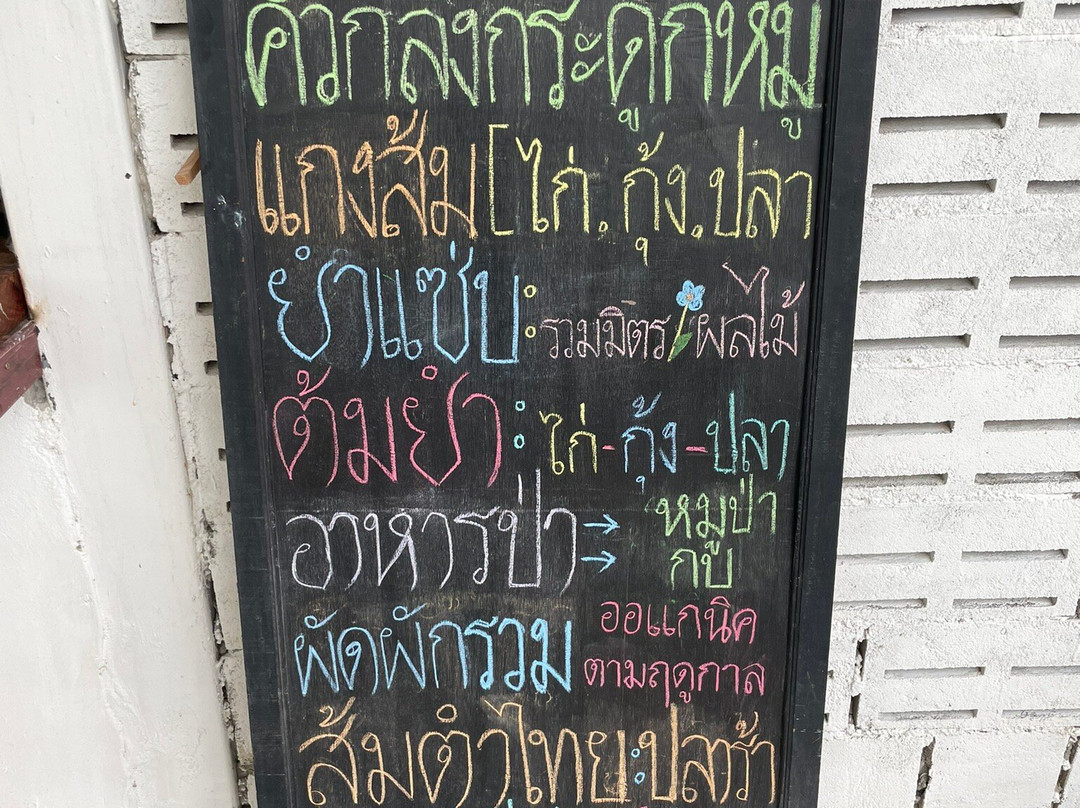 คั่วกลิ้งกระดูกหมู
แกงส้ม [ไก่.กุ้ง.ปลา
ยำแซ่บ : รวมมิตร/ผลไม้
ต้มยำ : ไก่-กุ้ง-ปลา
อาหารป่า → หมูป่า
→ กบ
ผัดผักรวม ออแกนิค
ตามฤดูกาล
ส้มตำไทย:ปลาร้า